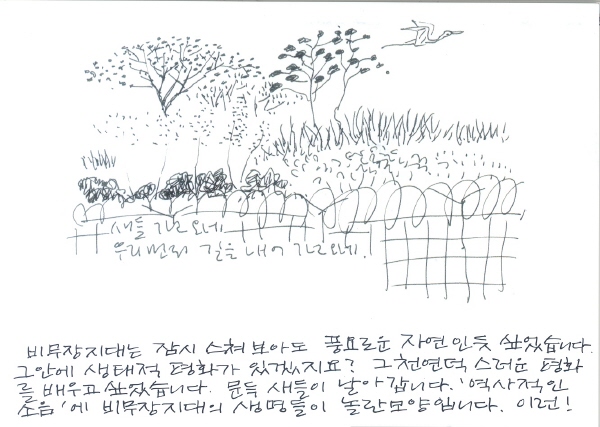 새들 가고 오네
우리 먼저 길을 내어 가고 오네!
비무장지대는 잠시 스쳐 보아도 풍요로운 자연인듯 싶었습니다.
그안에 생태적 평화가 있겠지요? 그 천연덕스러운 평화
를 배우고 싶었습니다. 문득 새들이 날아 갑니다. '역사적인
소음'에 비무장지대의 생명들이 놀란모양입니다. 이런!